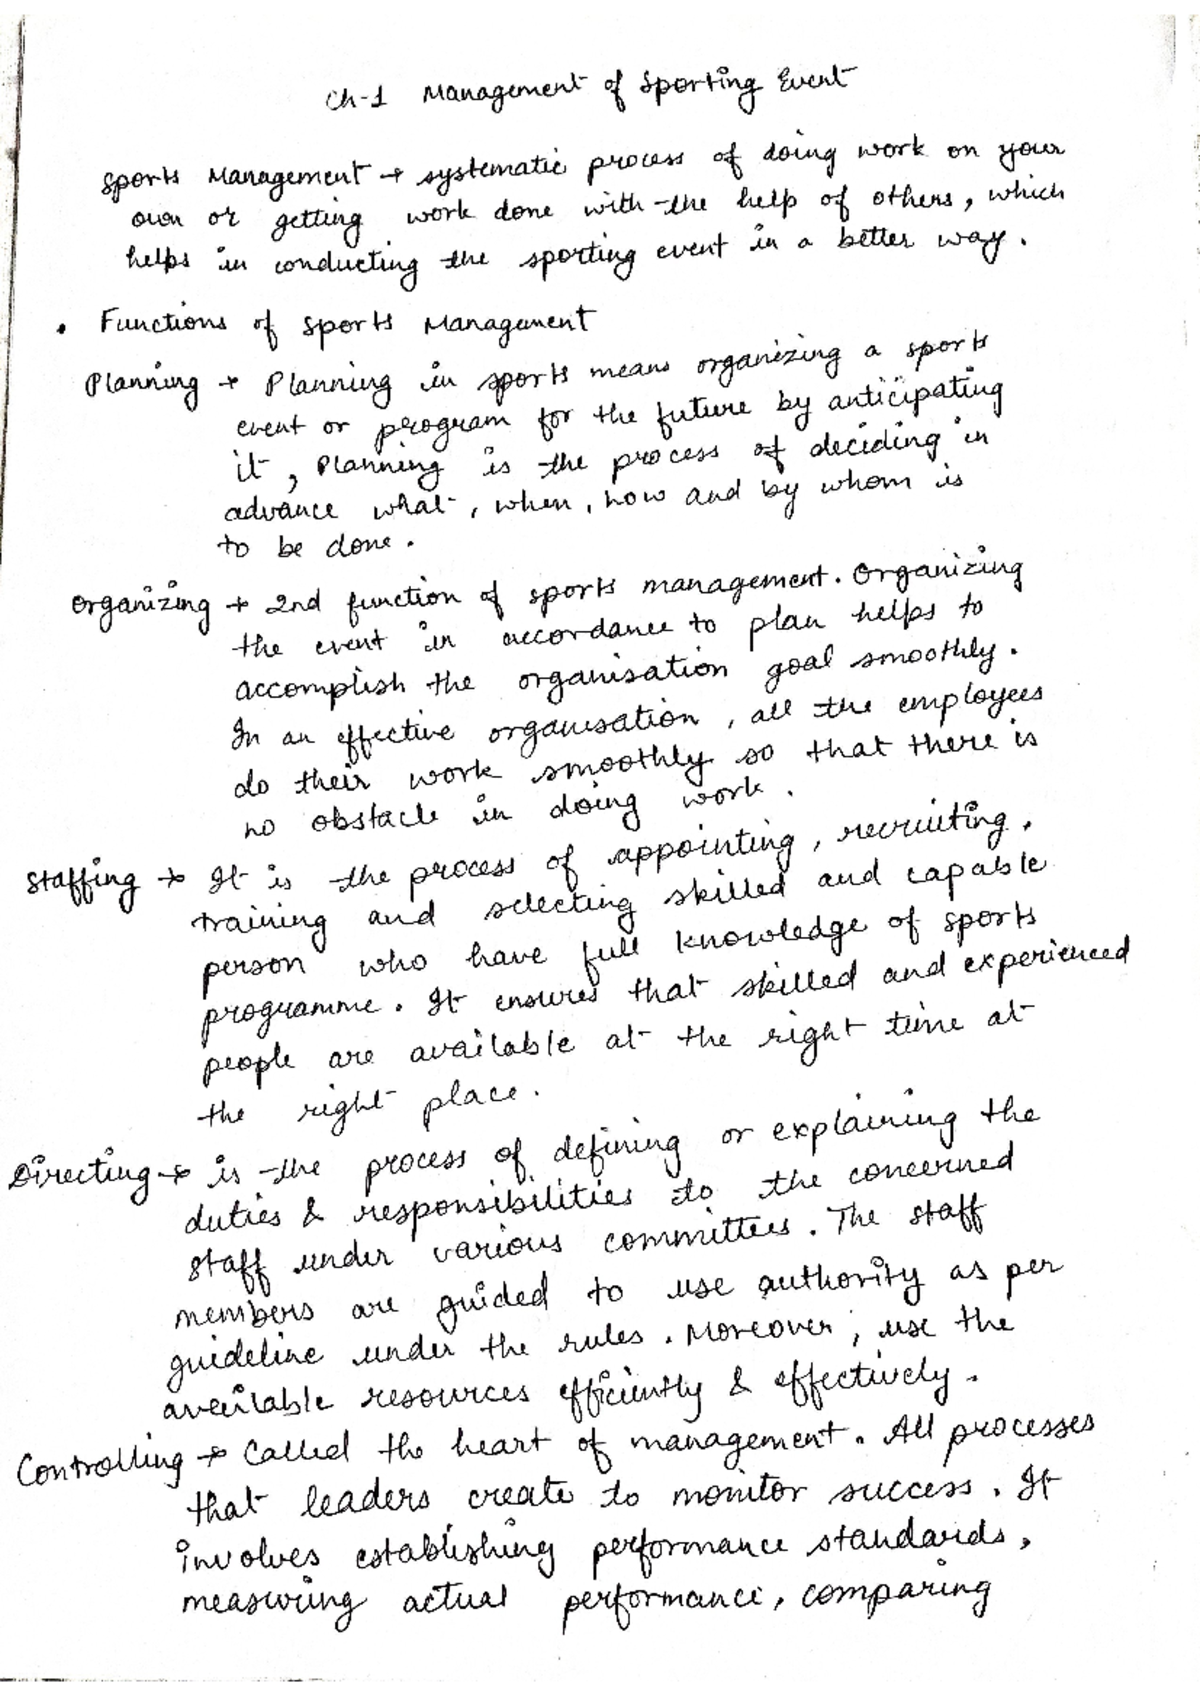 Ch-1 Management of Sporting Event
Sports Management → systematic process of doing work on your
own or getting work done with the help of others, which
helps in conducting the sporting event in a better way.
• Functions of Sports Management
Planning → Planning in sports means organizing a sports
event or program for the future by anticipating
it, Planning is the process of deciding in
advance what, when, how and by whom is
to be done.
Organizing → 2nd function of sports management. Organizing
the event in accordance to plan helps to
accomplish the organisation goal smoothly.
In an effective organisation, all the employees
do their work smoothly so that there is
no obstacle in doing work.
Staffing → It is the process of appointing, recruiting,
training and selecting skilled and capable
person who have full knowledge of sports
programme. It ensures that skilled and experienced
people are available at the right time at
the right place.
Directing → is the process of defining or explaining the
duties & responsibilities to the concerned
staff under various committees. The staff
members are guided to use authority as per
guideline under the rules. Moreover, use the
available resources efficiently & effectively.
Controlling → Called the heart of management. All processes
that leaders create to monitor success. It
involves establishing performance standards,
measuring actual performance, comparing